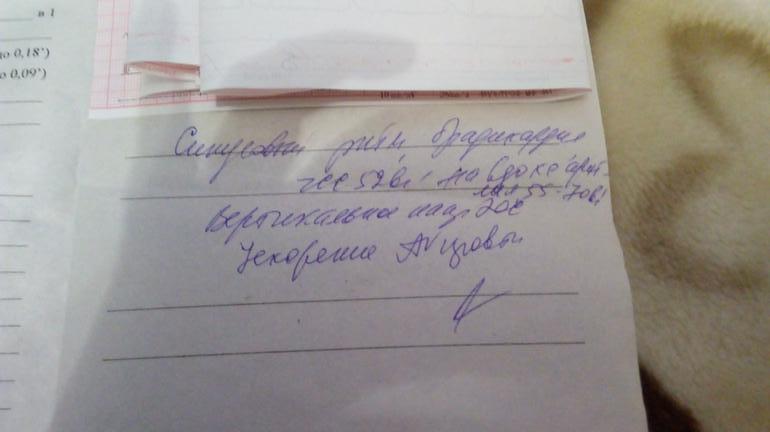 в 1
до 0,18")
о 0,09")
Синусовый ритм брадикардия
чсс 52 в 1' на вдохе арит-
мия 55-70 в 1'
Вертикальное напр ЭОС
Ускорение АV пров